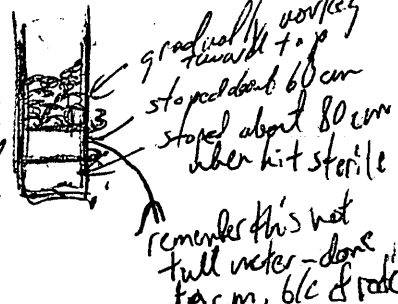 gradually worked
toward top
stoped about 60 cm
3
stoped about 80 cm
2
when hit sterile
1
remember this not
full meter - done
b/c of